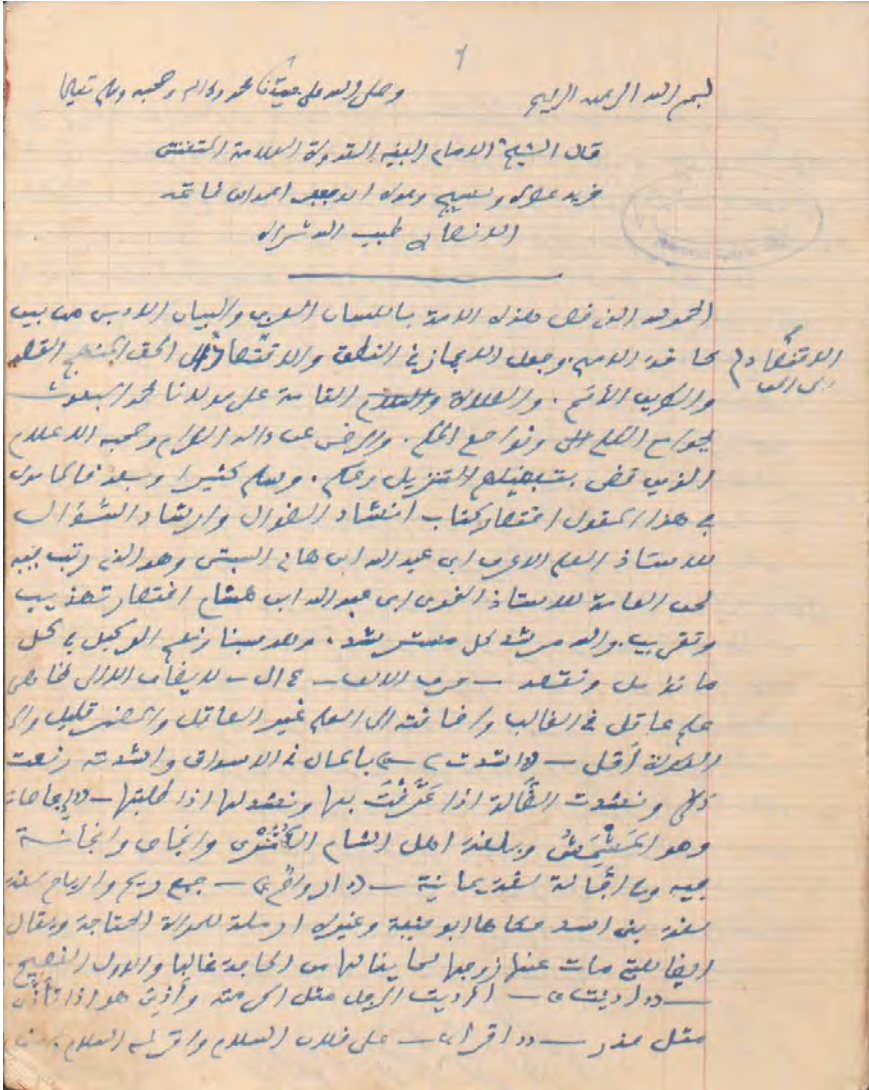 بسم الله الرحمن الرحيم وصلى الله على سيدنا محمد وآله وصحبه وسلم تسليما
قال الشيخ الامام الفقيه القدوة العلامة المتفنن
فريد عصره ونسيج وحده ابو جعفر احمد ابن خاتمه
الانصاري طبيب المرية
الحمد لله الذي خص هذه الامة باللسان العربي والبيان من بين
الامم وجعل الايجاز في النطق والاقتصار الحق المنهج القصد
الاقتصار
والطريق الأمم . والصلاة والسلام التامة على مولانا محمد المبعوث
بجوامع الكلم ونوابع الحكم . والرضى عن واله الكرام وصحبه الاعلام
الذين قضى بتفضيلهم التنزيل وحكم . وسلم كثيرا وبعد فالمأمول
في هذا المقول اختصار كتاب انشاد الضوال وارشاد السُّؤال
للاستاذ العلم الاعرف ابي عبد الله ابن هاني السبتي وهو الذي رتب فيه
لحن العامة للاستاذ اللغوي ابي عبد الله ابن هشام اختصار تهذيب
وتقريب والله مرشد كل مسترشد . وهو حسبنا ونعم الوكيل في كل
ما نؤمل ونقصد — حرف الالف — ءال — لا يضاف الا الى خاص
علم عاقل في الغالب واضافته الى العلم غير العاقل والمضمر قليل والى
النكرة أقل — ((انشدت)) — بالمال في الاسواق وانشدته رفعت
ذكره ونشدت الضَّالة اذا عَرَّفْتَ بها ونشدتها اذا طلبتها — ((إجاصة
وهو المَشْمَشُ وبلغة اهل الشام الكُمَّثْرى وانجاص وانجانة
لغة يمانية — ((ارواح)) — جمع ريح والارياح لغة
لغة بني اسد حكاها ابو حنيفة وغيره ارملة للمرأة المحتاجة ويقال
ايضا للتي مات عنها زوجها لما ينالها من الحاجة غالبا والاول الفصيح
— ((اذيت)) — اذيت الرجل مثل اكرمته وأذي هو اذا تأذى
مثل حذر — ((اقرا)) — على فلان السلام واقراه السلام